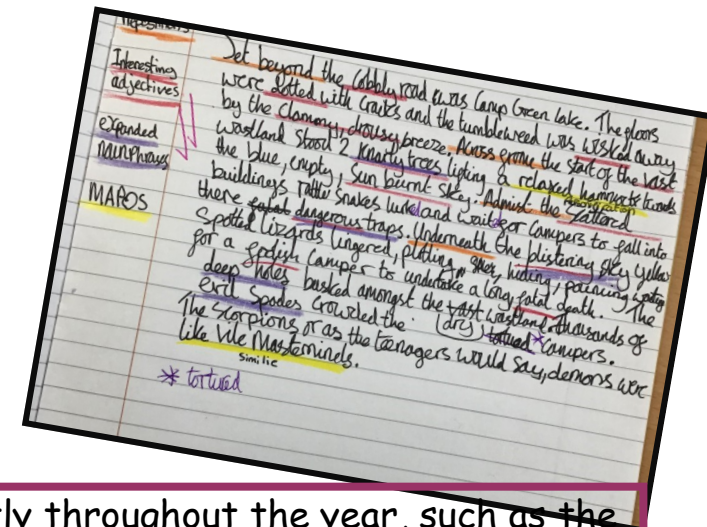 Prepositions
Interesting
adjectives
expanded
noun phrases
MAPOS
Set beyond the cobbly road was Camp Green Lake. The floors
were dotted with cracks and the tumbleweed was wisked away
by the clamony, drousy breeze. Across from the start of the vast
wastland stood 2 knarly trees lifting a relaxed hammock towards
the blue, empty, sun burnt sky. Admist the scattered
buildings rattle snakes lurk and wait for campers to fall into
there dangerous traps. Underneath the blistering sky yellow
Spotted lizards lingered, plotting, hiding, waiting
for a foolish camper to undertake a long, fatal death. The
deep holes basked amongst the vast wastland thousands of
evil spades crowded the (dry) tortured * campers.
The Scorpions, or as the teenagers would say, demons were
like Vile Masterminds.
Similie
* tortured
tly throughout the year, such as the